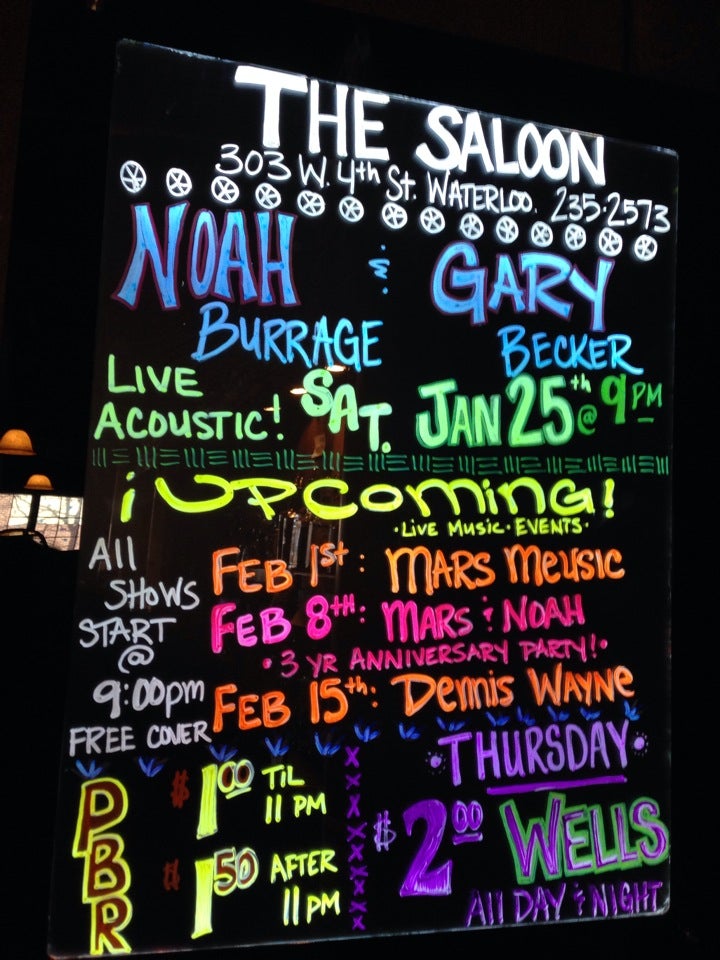 THE SALOON
303 W. 4th St. WATERLOO. 235·2573
NOAH & GARY
BURRAGE BECKER
LIVE ACOUSTIC! SAT. JAN 25th @ 9PM
¡UPCOMING!
·LIVE MUSIC·EVENTS·
All SHOWS START @ 9:00pm FREE COVER
FEB 1st: MARS MEUSIC
FEB 8TH: MARS & NOAH
·3 YR ANNIVERSARY PARTY!·
FEB 15th: Dennis WAYNE
PBR
$100 TIL 11 PM
$150 AFTER 11 PM
·THURSDAY·
$200 WELLS
All DAY & NIGHT